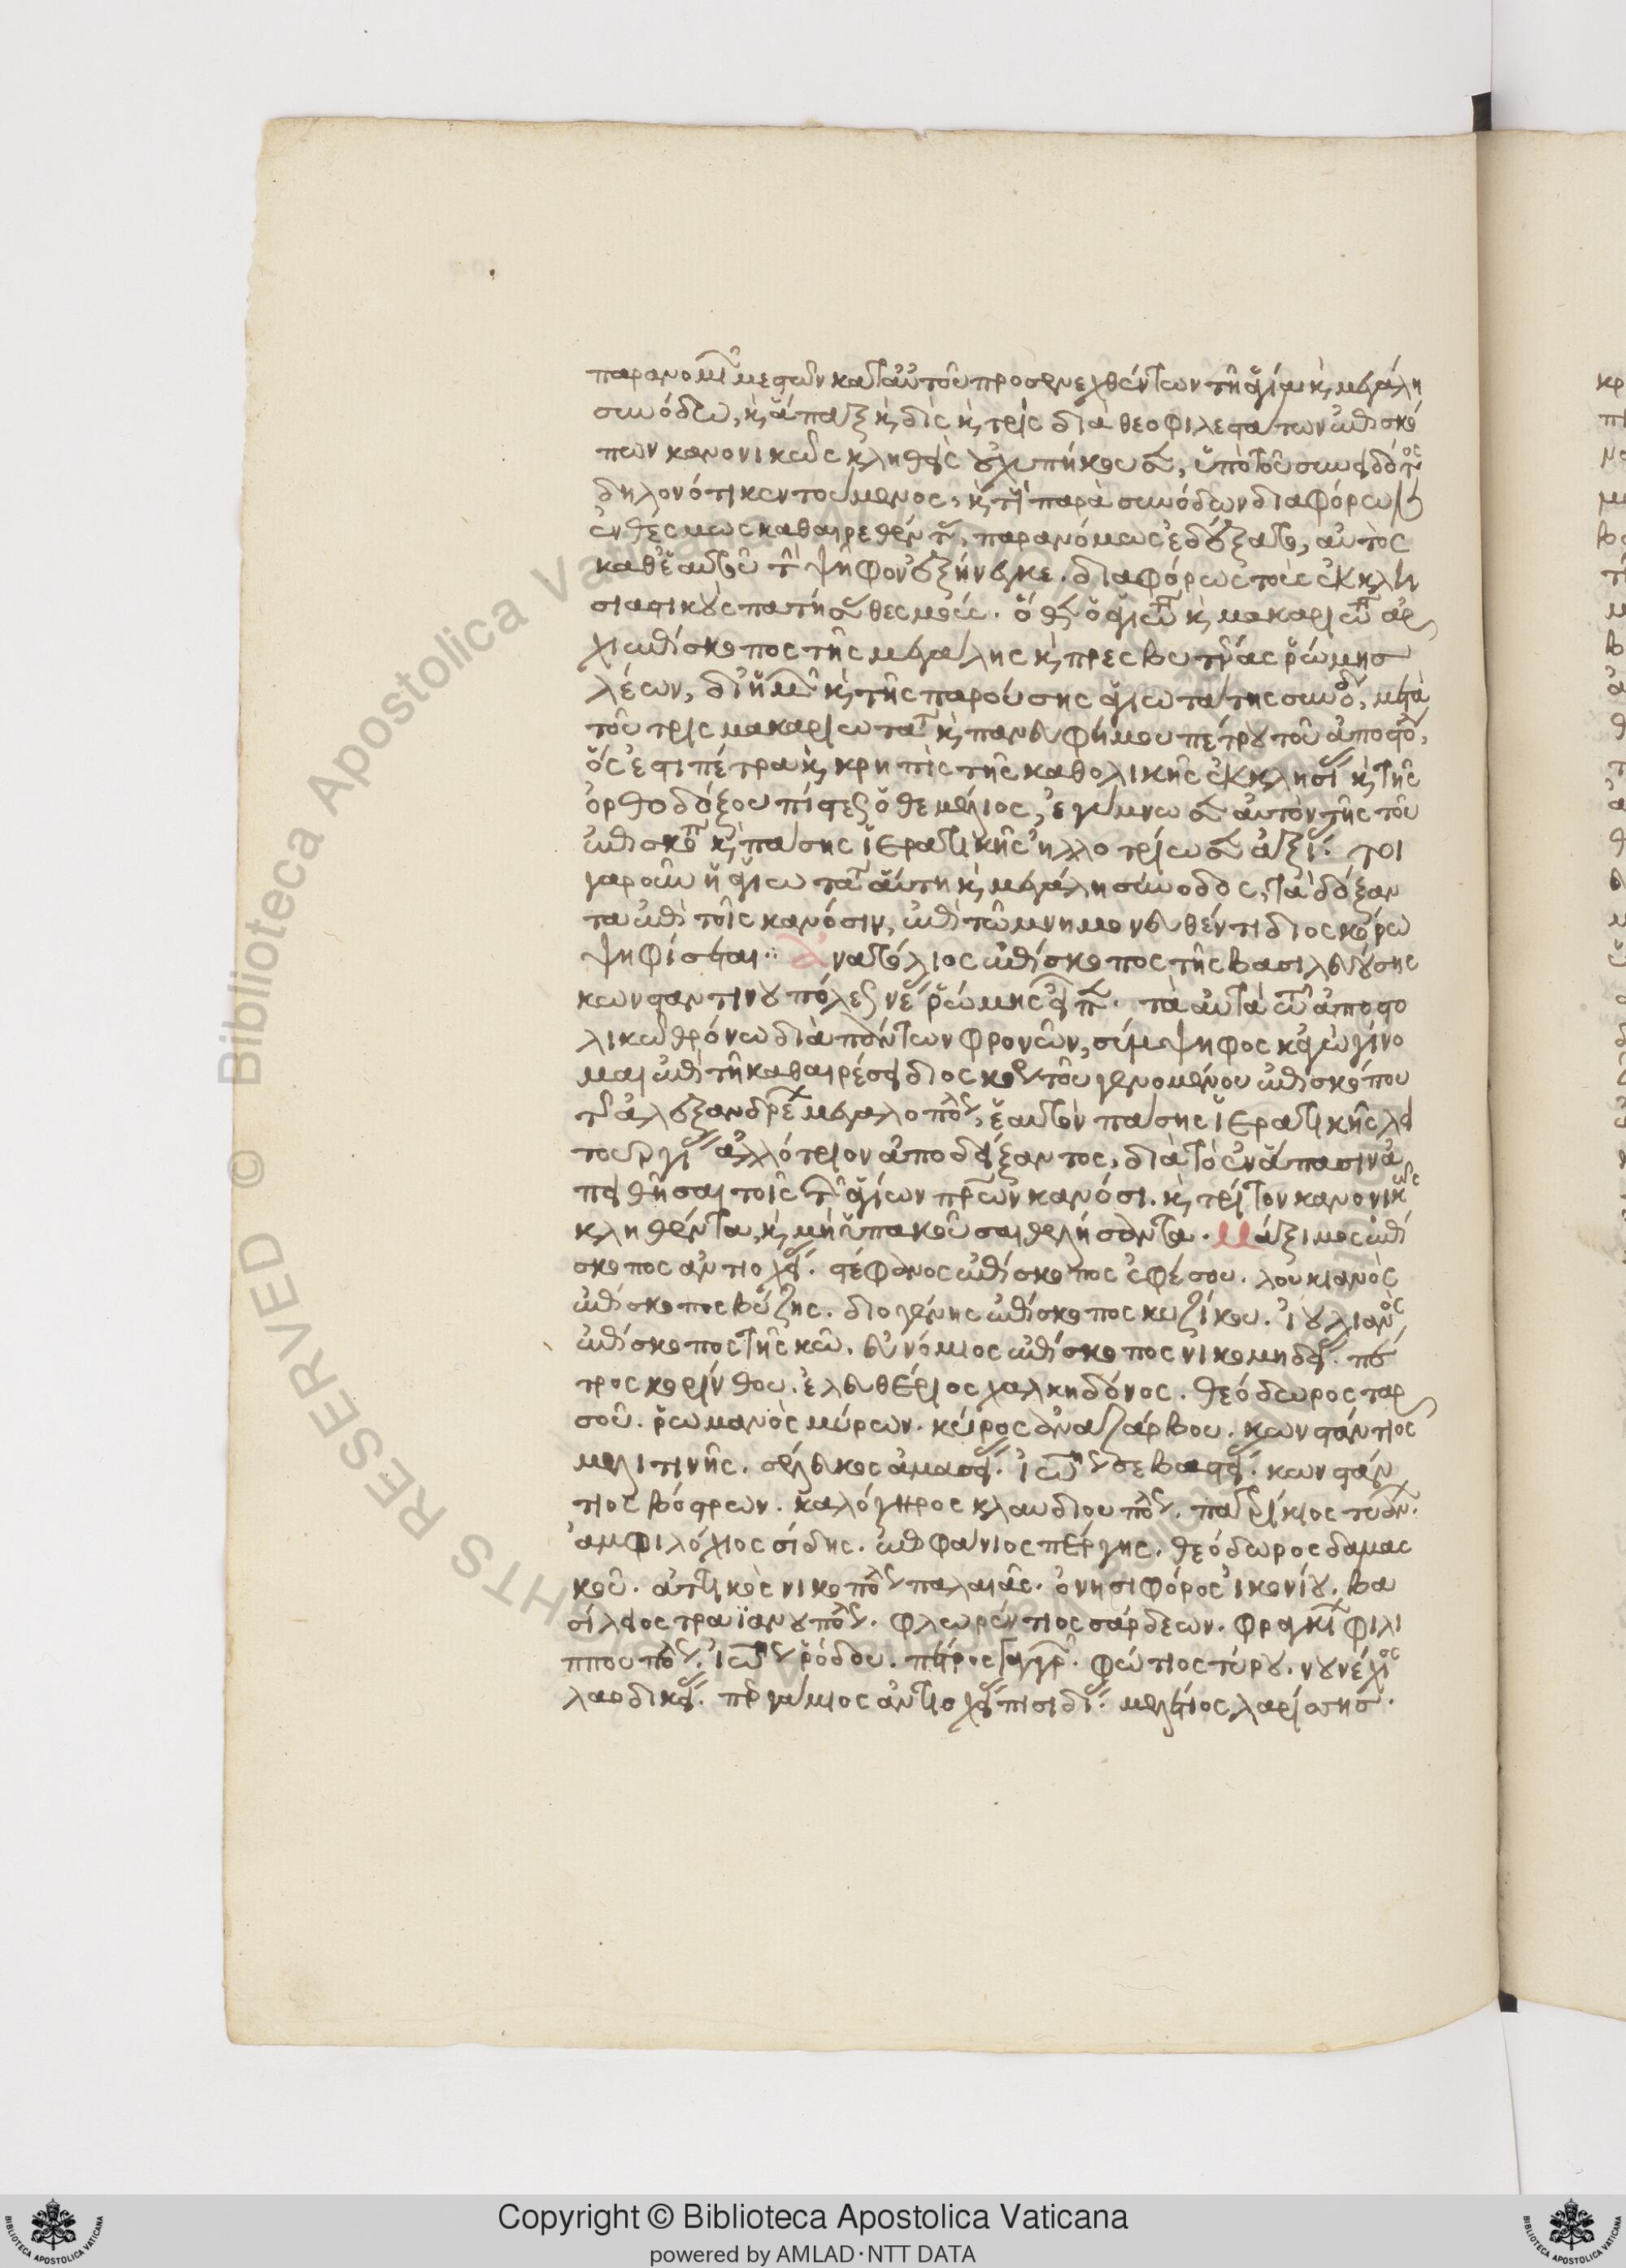 παρανομι μεστῶν κατ αὐτοῦ προσενεχθέντων τῇ ἁγίᾳ καὶ μεγάλῃ
συνόδω, καὶ ἅπαξ καὶ δὶς καὶ τρὶς διὰ θεοφιλεστάτων ἐπισκό
πων κανονικῶς κληθεὶς οὐχ ὑπήκουσεν, ὑπὸ τοῦ συνειδότος
δηλονότι κεντούμενος, καὶ παρὰ συνόδων διαφόρων
ἐνθέσμως καθαιρεθέντας, παρανόμως ἐδέξατο, αὐτὸς
καθ ἑαυτοῦ τὴν ψῆφον ἐξήνεγκε. διαφόρως τοὺς ἐκκλη
σιαστικοὺς πατήσας θεσμούς. ὅθεν ὁ ἁγιώτατος καὶ μακαριώτατος ἀρ
χιεπίσκοπος τῆς μεγάλης καὶ πρεσβυτέρας ῥώμης
λέων, δι ἡμῶν καὶ τῆς παρούσης ἁγιωτάτης συνόδου, μετὰ
τοῦ τρὶς μακαριωτάτου καὶ πανευφήμου πέτρου τοῦ ἀποστόλου,
ὅς ἐστι πέτρα καὶ κρηπὶς τῆς καθολικῆς ἐκκλησίας καὶ τῆς
ὀρθοδόξου πίστεως ὁ θεμέλιος, ἐγύμνωσεν αὐτὸν τῆς τοῦ
ἐπισκοπῆς καὶ πάσης ἱερατικῆς ἠλλοτρίωσεν ἀξίας. τοι
γαροῦν ἡ ἁγιωτάτη αὕτη καὶ μεγάλη σύνοδος, τὰ δόξαν
τα ἐπὶ τοῖς κανόσιν, ἐπὶ τῷ μνημονευθέντι διοσκόρω
ψηφίσεται: Ἀνατόλιος ἐπίσκοπος τῆς βασιλευούσης
κωνσταντινουπόλεως νέας ῥώμης εἶπεν. τὰ αὐτὰ τῷ ἀποστο
λικῷ θρόνω διὰ πάντων φρονῶν, σύμψηφος κἀγὼ γίνο
μαι ἐπὶ τῇ καθαιρέσει διοσκόρου τοῦ γενομένου ἐπισκόπου
τῆς ἀλεξανδρέων μεγαλοπόλεως, ἑαυτὸν πάσης ἱερατικῆς λει
τουργίας ἀλλότριον ἀποδείξαντος, διὰ τὸ ἐν ἅπασιν ἀ
πειθῆσαι τοῖς τῶν ἁγίων πατέρων κανόσι. καὶ τρίτον κανονικῶς
κληθέντα, καὶ μὴ ὑπακοῦσαι θελήσαντα. Μάξιμος ἐπί
σκοπος ἀντιοχείας. στέφανος ἐπίσκοπος ἐφέσου. λουκιανὸς
ἐπίσκοπος βύζης. διογένης ἐπίσκοπος κυζίκου. ἰουλιανὸς
ἐπίσκοπος τῆς κῶ. εὐνόμιος ἐπίσκοπος νικομηδείας. πέ
τρος κορίνθου. ἐλευθέριος χαλκηδόνος. θεόδωρος ταρ
σοῦ. ῥωμανὸς μύρων. κύρος ἀναζάρβου. κωνστάντιος
μελιτινῆς. σέλευκος ἀμασείας. ἰωάννου σεβαστείας. κωνστάν
τιος βόστρων. καλόγηρος κλαυδιουπόλεως. πατρίκιος τυάνων.
ἀμφιλόχιος σίδης. ἐπιφανιος πέργης. θεόδωρος δαμασ
κοῦ. ἀττικὸς νικοπόλεως παλαιᾶς. ὀνησιφόρος ἰκονίου. βα
σίλειος τραϊανουπόλεως. φλωρέντιος σάρδεων. φραγκί φιλι
ππουπόλεως. ἰωάννου ῥόδου. πέτρος γάγγρων. φώτιος τύρου. νουνέχιος
λαοδικείας. περγάμιος ἀντιοχείας πισιδίας. μελέτιος λαρίσσης.